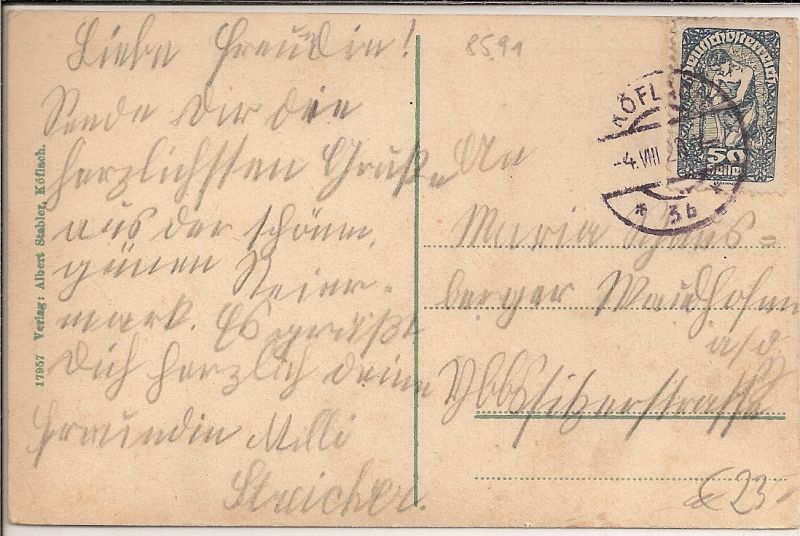 Liebe Freundin!
Sende Dir die
herzlichsten Grüße
aus der schönen,
grünen Steier-
mark. Es grüßt
Dich herzlich deine
Freundin Milli
Streicher.
8591
17957 Verlag: Albert Stabler, Köflach.
Deutschösterreich
50
Heller
KÖFLACH
-4.VIII 2
* 3b *
An
Maria
berger Waidhofen
a/d
Ybbsitzerstraße
23-